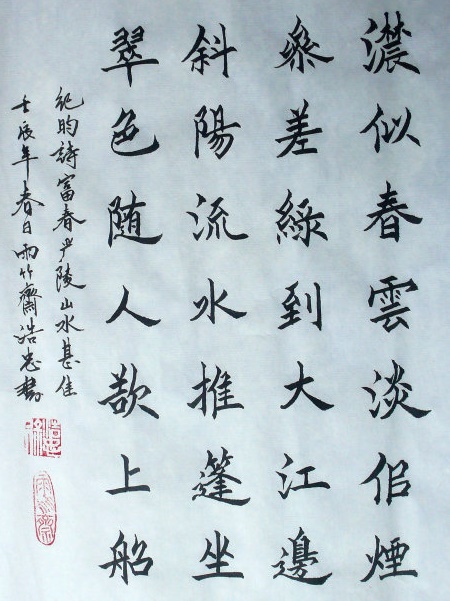 濃似春雲淡佀煙
叅差綠到大江邊
斜陽流水推篷坐
翠色随人欲上船
紀昀詩富春严陵山水甚佳
壬辰年春日雨竹齋浩忠書